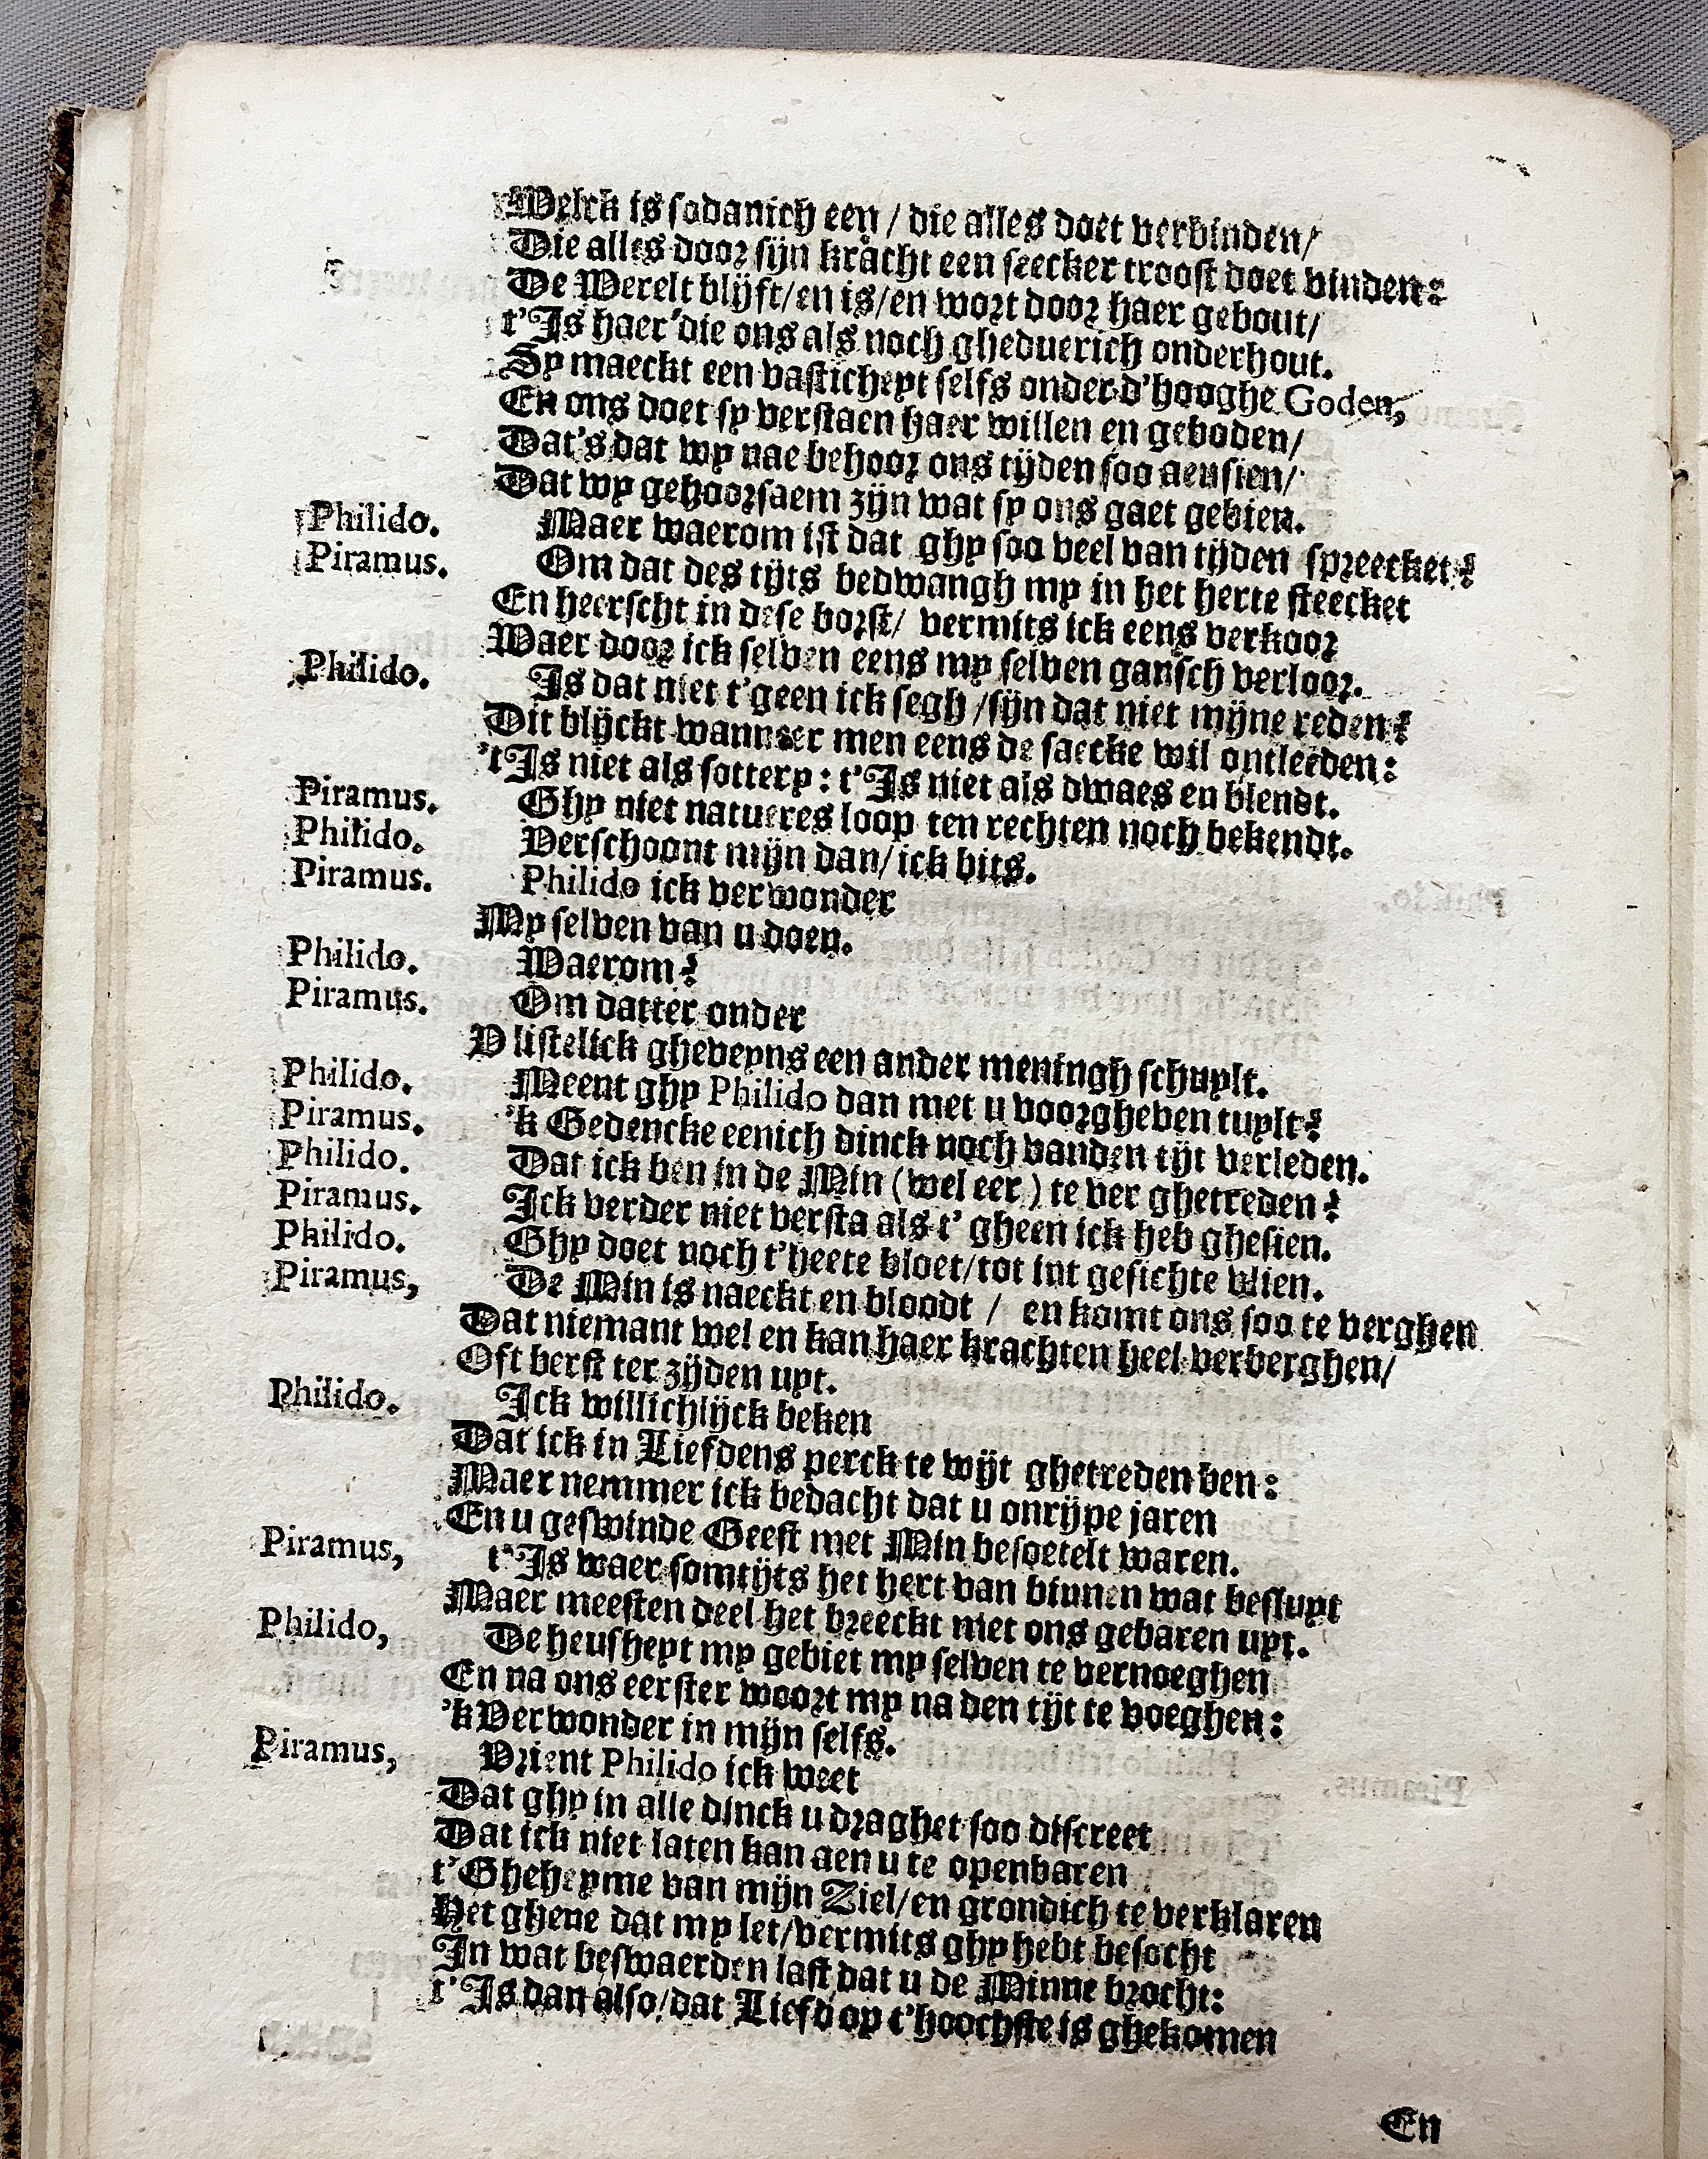 Welck is sodanich een / die alles doet verbinden/
Die alles door sijn kracht een seecker troost doet vinden:
De Werelt blijft/en is/en wort door haer gebout/
t'Is haer die ons als noch gheduerich onderhout.
Sy maeckt een vasticheyt selfs onder d'hooghe Goden,
En ons doet sy verstaen haer willen en geboden/
Dat's dat wy nae behoor ons tijden soo aensien/
Dat wy gehoorsaem zijn wat sy ons gaet gebien.
Philido. Maer waerom ist dat ghy soo veel van tijden spreecket?
Piramus. Om dat des tijts bedwangh my in het herte steecket
En heerscht in dese borst/ vermits ick eens verkoor
Waer door ick selven eens my selven gansch verloor.
Philido. Is dat niet t'geen ick segh /sijn dat niet mijne reden?
Dit blijckt wanneer men eens de saecke wil ontleeden:
't Is niet als sottery: t'Is niet als dwaes en blendt.
Piramus. Ghy niet natueres loop ten rechten noch bekendt.
Philido. Verschoont mijn dan/ick bits.
Piramus. Philido ick verwonder
My selven van u doen.
Philido. Waerom?
Piramus. Om datter onder
V listelick gheveyns een ander meningh schuylt.
Philido. Meent ghy Philido dan met u voorgheven tuylt?
Piramus. 'k Gedencke eenich dinck noch vanden tijt verleden.
Philido. Dat ick ben in de Min (wel eer) te ver ghetreden?
Piramus. Ick verder niet versta als t' gheen ick heb ghesien.
Philido. Ghy doet noch t'heete bloet/tot int gesichte vlien.
Piramus, De Min is naeckt en bloodt / en komt ons soo te verghen
Dat niemant wel en kan haer krachten heel verberghen/
Oft berst ter zijden uyt.
Philido. Ick willichlijck beken
Dat ick in Liefdens perck te wijt ghetreden ben:
Maer nemmer ick bedacht dat u onrijpe jaren
En u geswinde Geest met Min besoetelt waren.
Piramus, t'Is waer somtijts het hert van binnen wat besluyt
Maer meesten deel het breeckt met ons gebaren uyt.
Philido, De heusheyt my gebiet my selven te vernoeghen
En na ons eerster woort my na den tijt te voeghen:
'k Verwonder in mijn selfs.
Piramus, Vrient Philido ick weet
Dat ghy in alle dinck u draghet soo discreet
Dat ick niet laten kan aen u te openbaren
t'Gheheyme van mijn Ziel/en grondich te verklaren
Het ghene dat my let/vermits ghy hebt besocht
In wat beswaerden last dat u de Minne brocht:
t'Is dan also/dat Liefd op t'hoochste is ghekomen
En